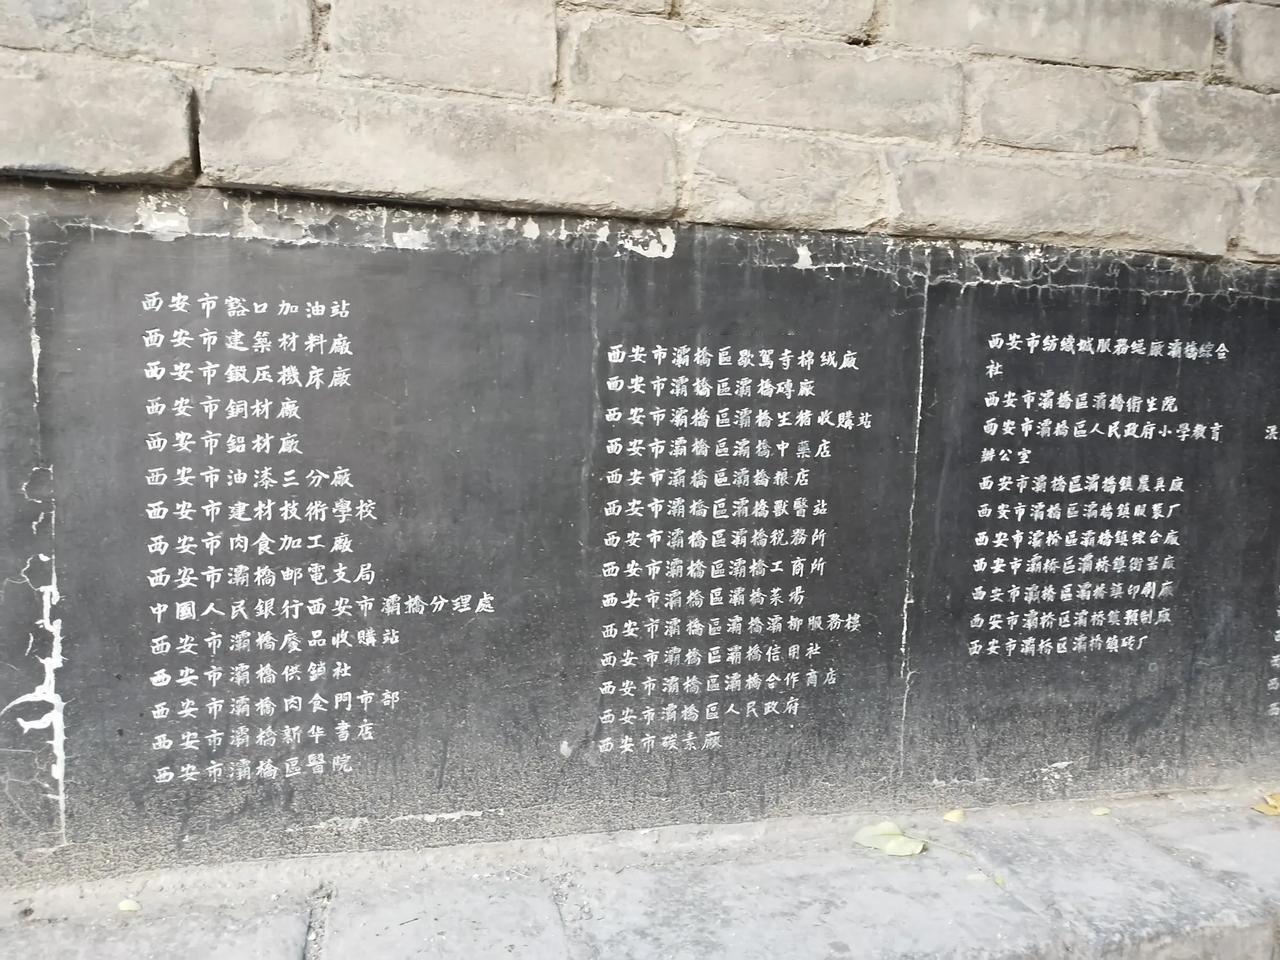 西安市豁口加油站
西安市建築材料廠
西安市鍛压機床廠
西安市銅材廠
西安市鋁材廠
西安市油漆三分廠
西安市建材技術學校
西安市肉食加工廠
西安市灞橋邮電支局
中國人民銀行西安市灞橋分理處
西安市灞橋廢品收購站
西安市灞橋供銷社
西安市灞橋肉食門市部
西安市灞橋新华書店
西安市灞橋區醫院
西安市灞橋區歇駕寺棉絨廠
西安市灞橋區灞橋磚廠
西安市灞橋區灞橋生猪收購站
西安市灞橋區灞橋中藥店
西安市灞橋區灞橋粮店
西安市灞橋區灞橋獸醫站
西安市灞橋區灞橋税務所
西安市灞橋區灞橋工商所
西安市灞橋區灞橋菜場
西安市灞橋區灞橋灞柳服務樓
西安市灞橋區灞橋信用社
西安市灞橋區灞橋合作商店
西安市灞橋區人民政府
西安市碳素廠
西安市紡織城服務總廠灞橋綜合
社
西安市灞橋區灞橋衛生院
西安市灞橋區人民政府小学教育
辦公室
西安市灞橋區灞橋鎮農具廠
西安市灞橋区灞橋鎮服装厂
西安市灞橋區灞橋鎮綜合廠
西安市灞橋區灞橋鎮街器廠
西安市灞橋區灞橋鎮印刷廠
西安市灞橋区灞橋鎮預制廠
西安市灞橋区灞橋鎮砖厂